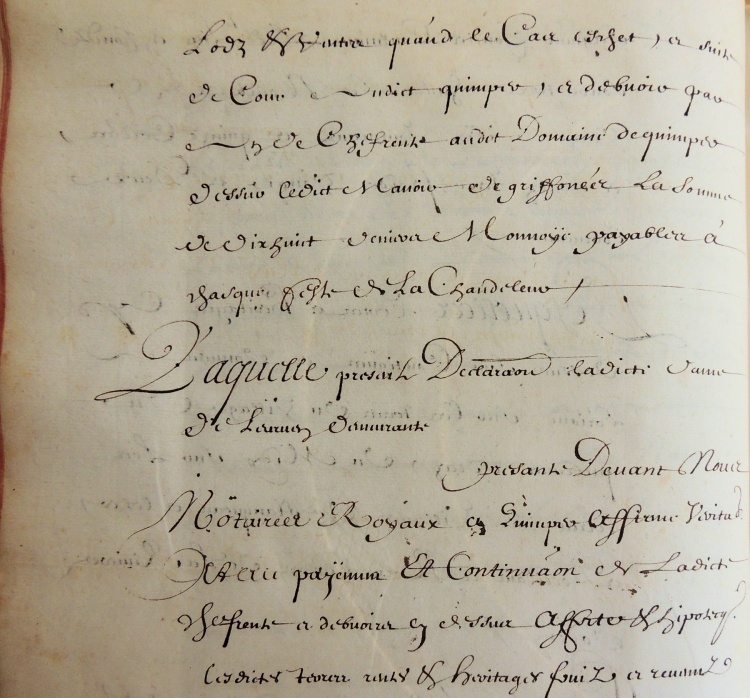 Lodz & Ventes quand le Cas eschet, et suite
de Cour audict quimper, et debvoir par
de Cheffrente audit Domaine de quimper
dessus ledict Manoir de griffonéz La Somme
de dixhuict deniers Monnoye payables à
chasque feste de La Chandeleur /
Laquelle presante Declaraõn Ladicte dame
de demeurante
presante Devant Nous
Notaires Royaux a Quimper Affirme Verita
payement Et Continuãon de Ladicte
cheffrente et debvoirs cy dessus Affecte & hipotecq.
Lesdictes terres rentes & heritages